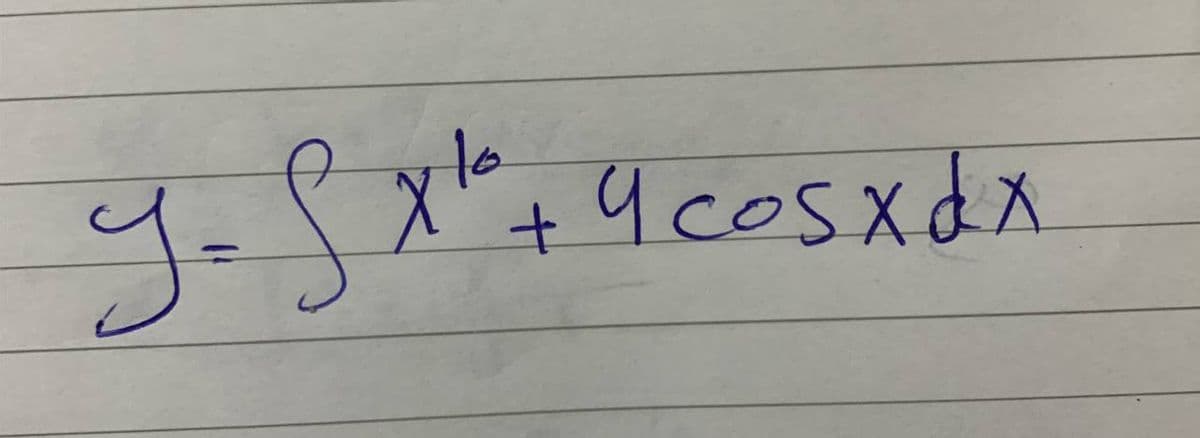 y = ∫ x¹⁰ + 4 cosx dx